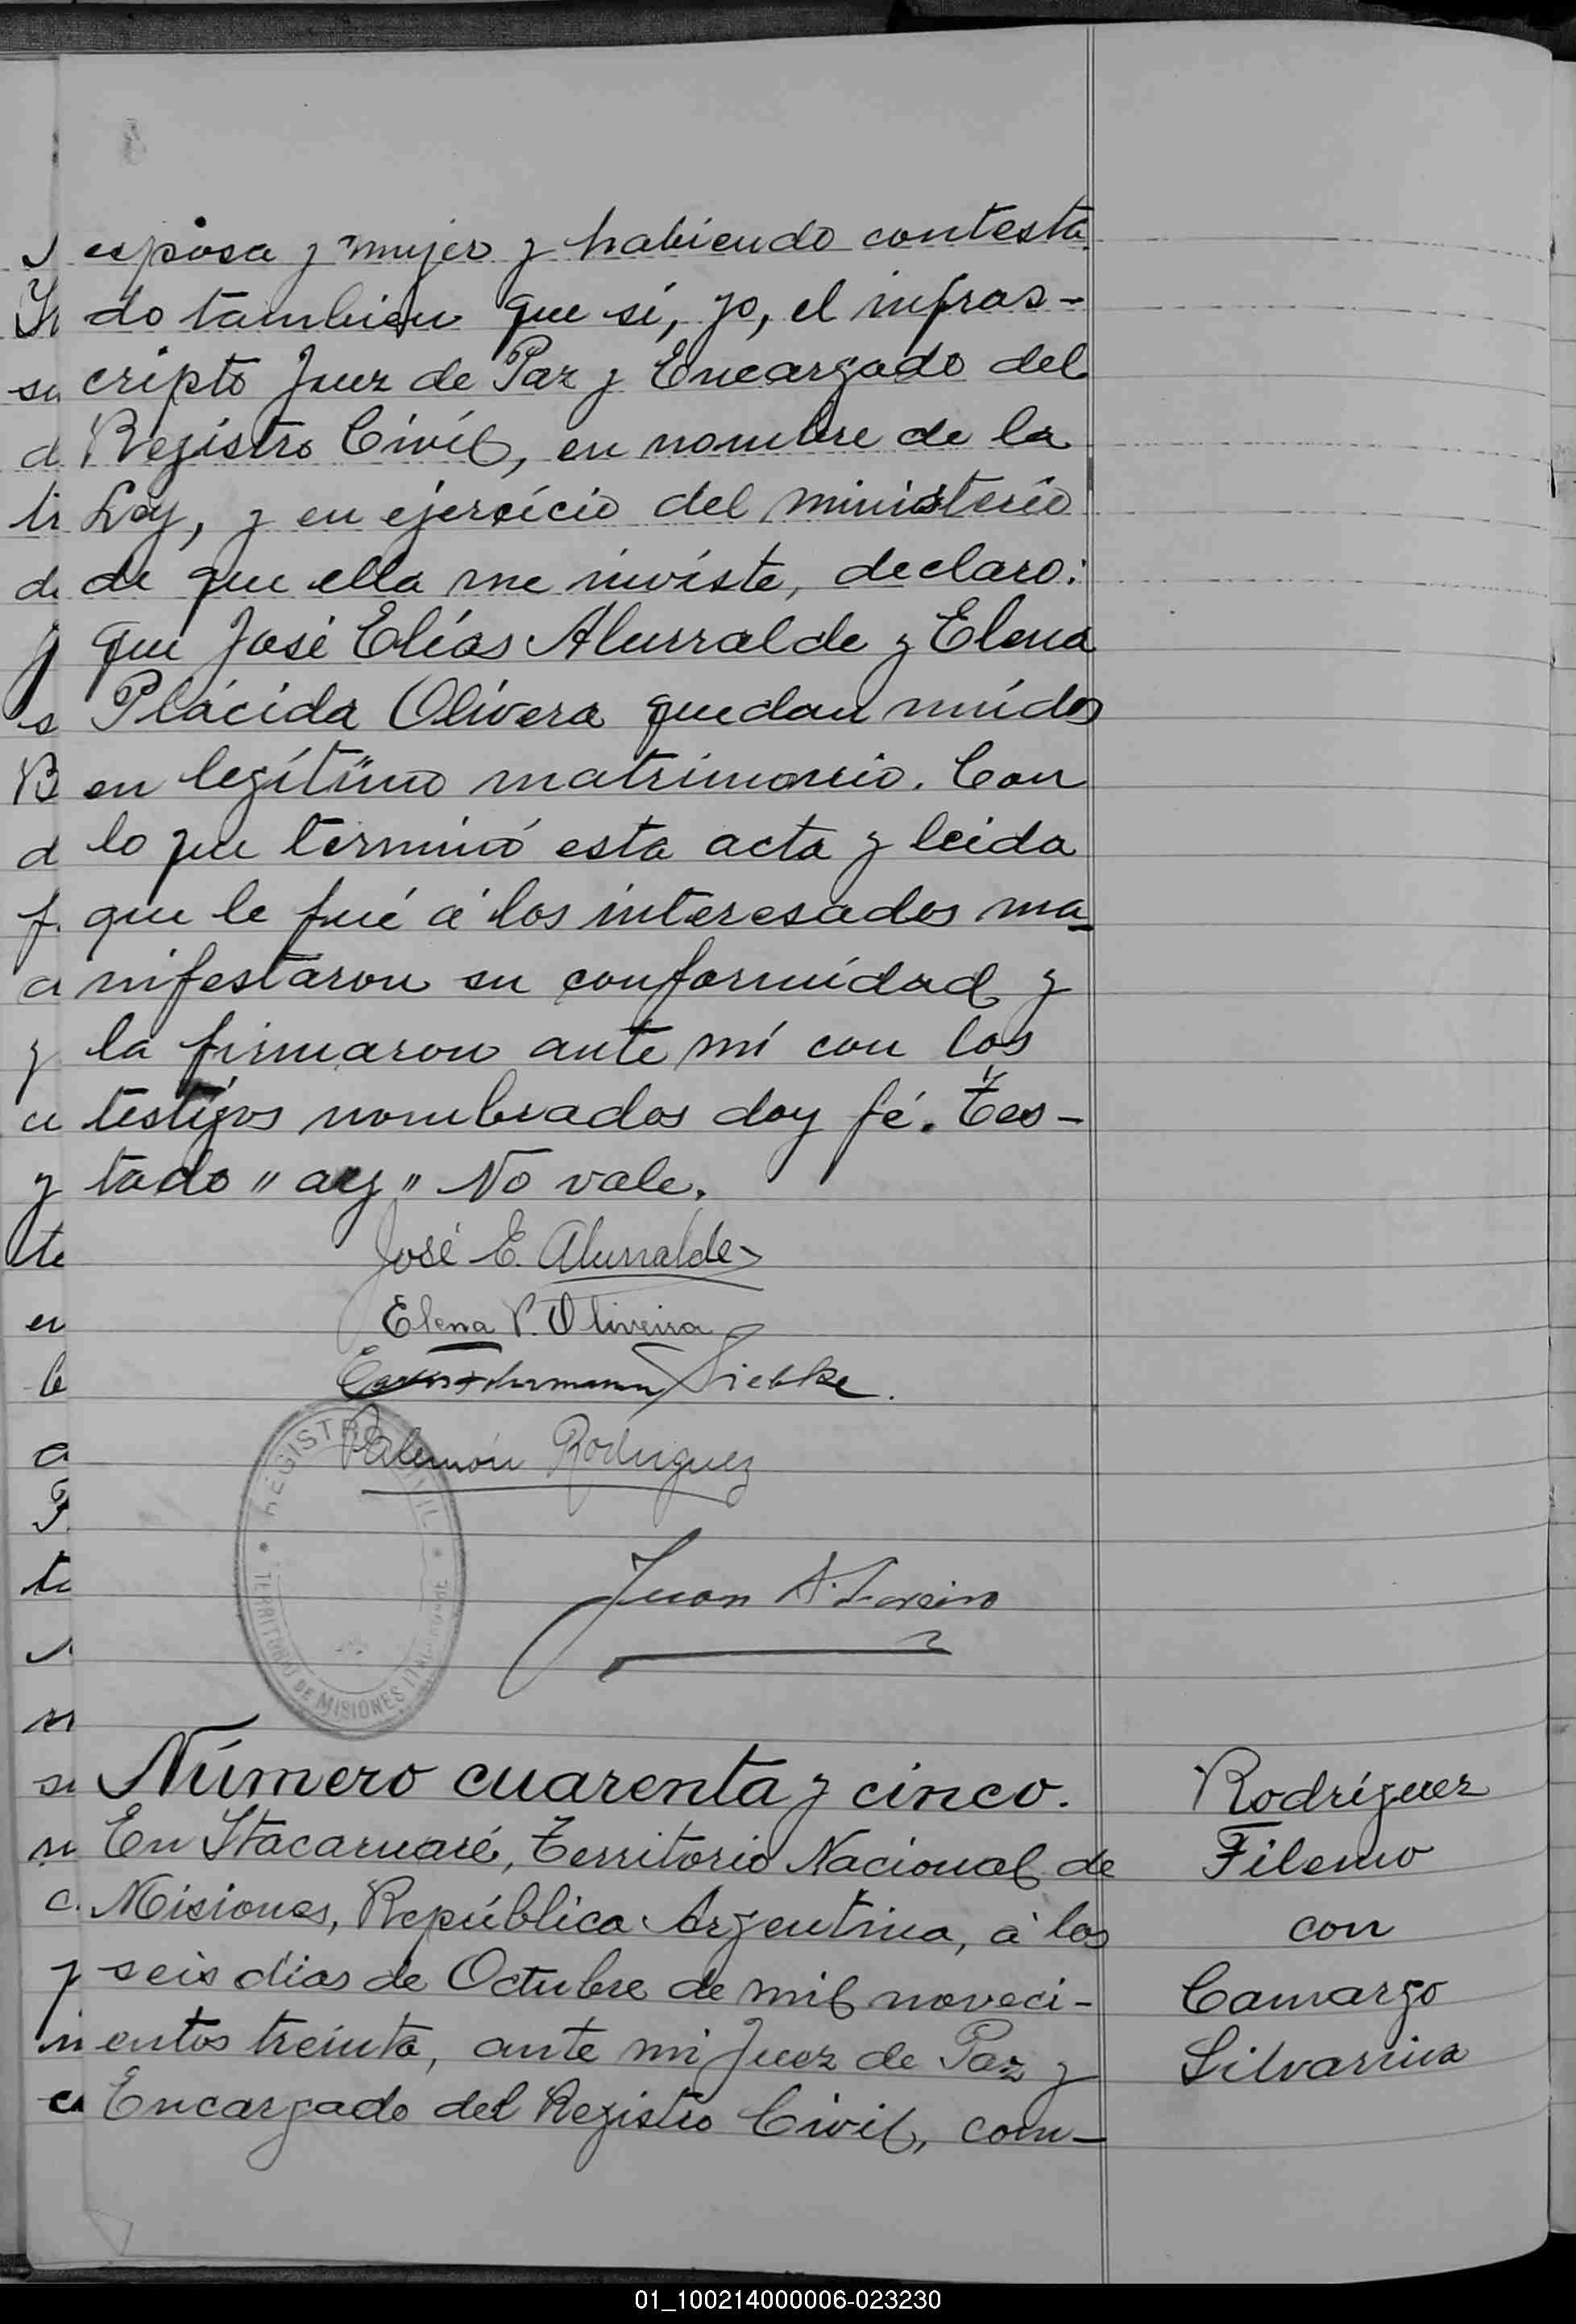 esposa y mujer y habiendo contesta
do tambien que sí, yo, el infras-
cripto Juez de Paz y Encargado del
Registro Civil, en nombre de la
Ley, y en ejercicio del ministerio
de que ella me inviste, declaro:
que José Elías Alurralde y Elena
Plácida Olivera quedan unidos
en legítimo matrimonio. Con
lo que terminó esta acta y leida
que le fué á los interesados ma-
nifestaron su conformidad y
la firmaron ante mí con los
testigos nombrados doy fé. Tes-
tado "arg" No vale.
José E. Alurralde
Elena P. Oliveira
Palemón Rodriguez
REGISTRO CIVIL
TERRITORIO DE MISIONES
Juan A.
Número cuarenta y cinco.
En Itacaruaré, Territorio Nacional de
Misiones, República Argentina, á los
seis dias de Octubre de mil noveci-
entos treinta, ante mi Juez de Paz y
Encargado del Registro Civil, com-
Rodríguez
Filemo
con
Camargo
Silvarina
01_100214000006-023230